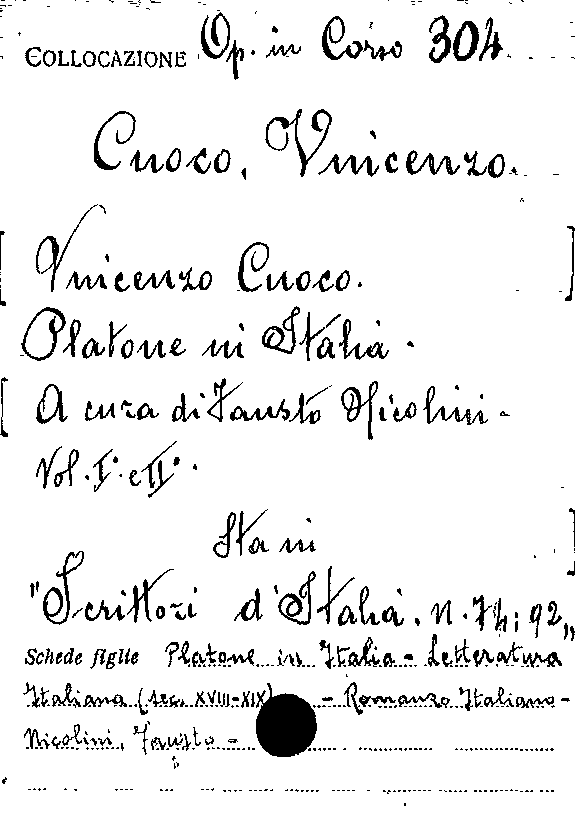 COLLOCAZIONE Op. in Corso 304
Cuoco, Vincenzo.
[ Vincenzo Cuoco. ]
Platone in Italia.
[ A cura di Fausto Nicolini -
Vol. I° e II°.
Sta in ]
"Scrittori d'Italia. n. 74; 92„
Schede figlie Platone in Italia - Letteratura
Italiana (sec. XVIII-XIX) - Romanzo Italiano -
Nicolini, Fausto -